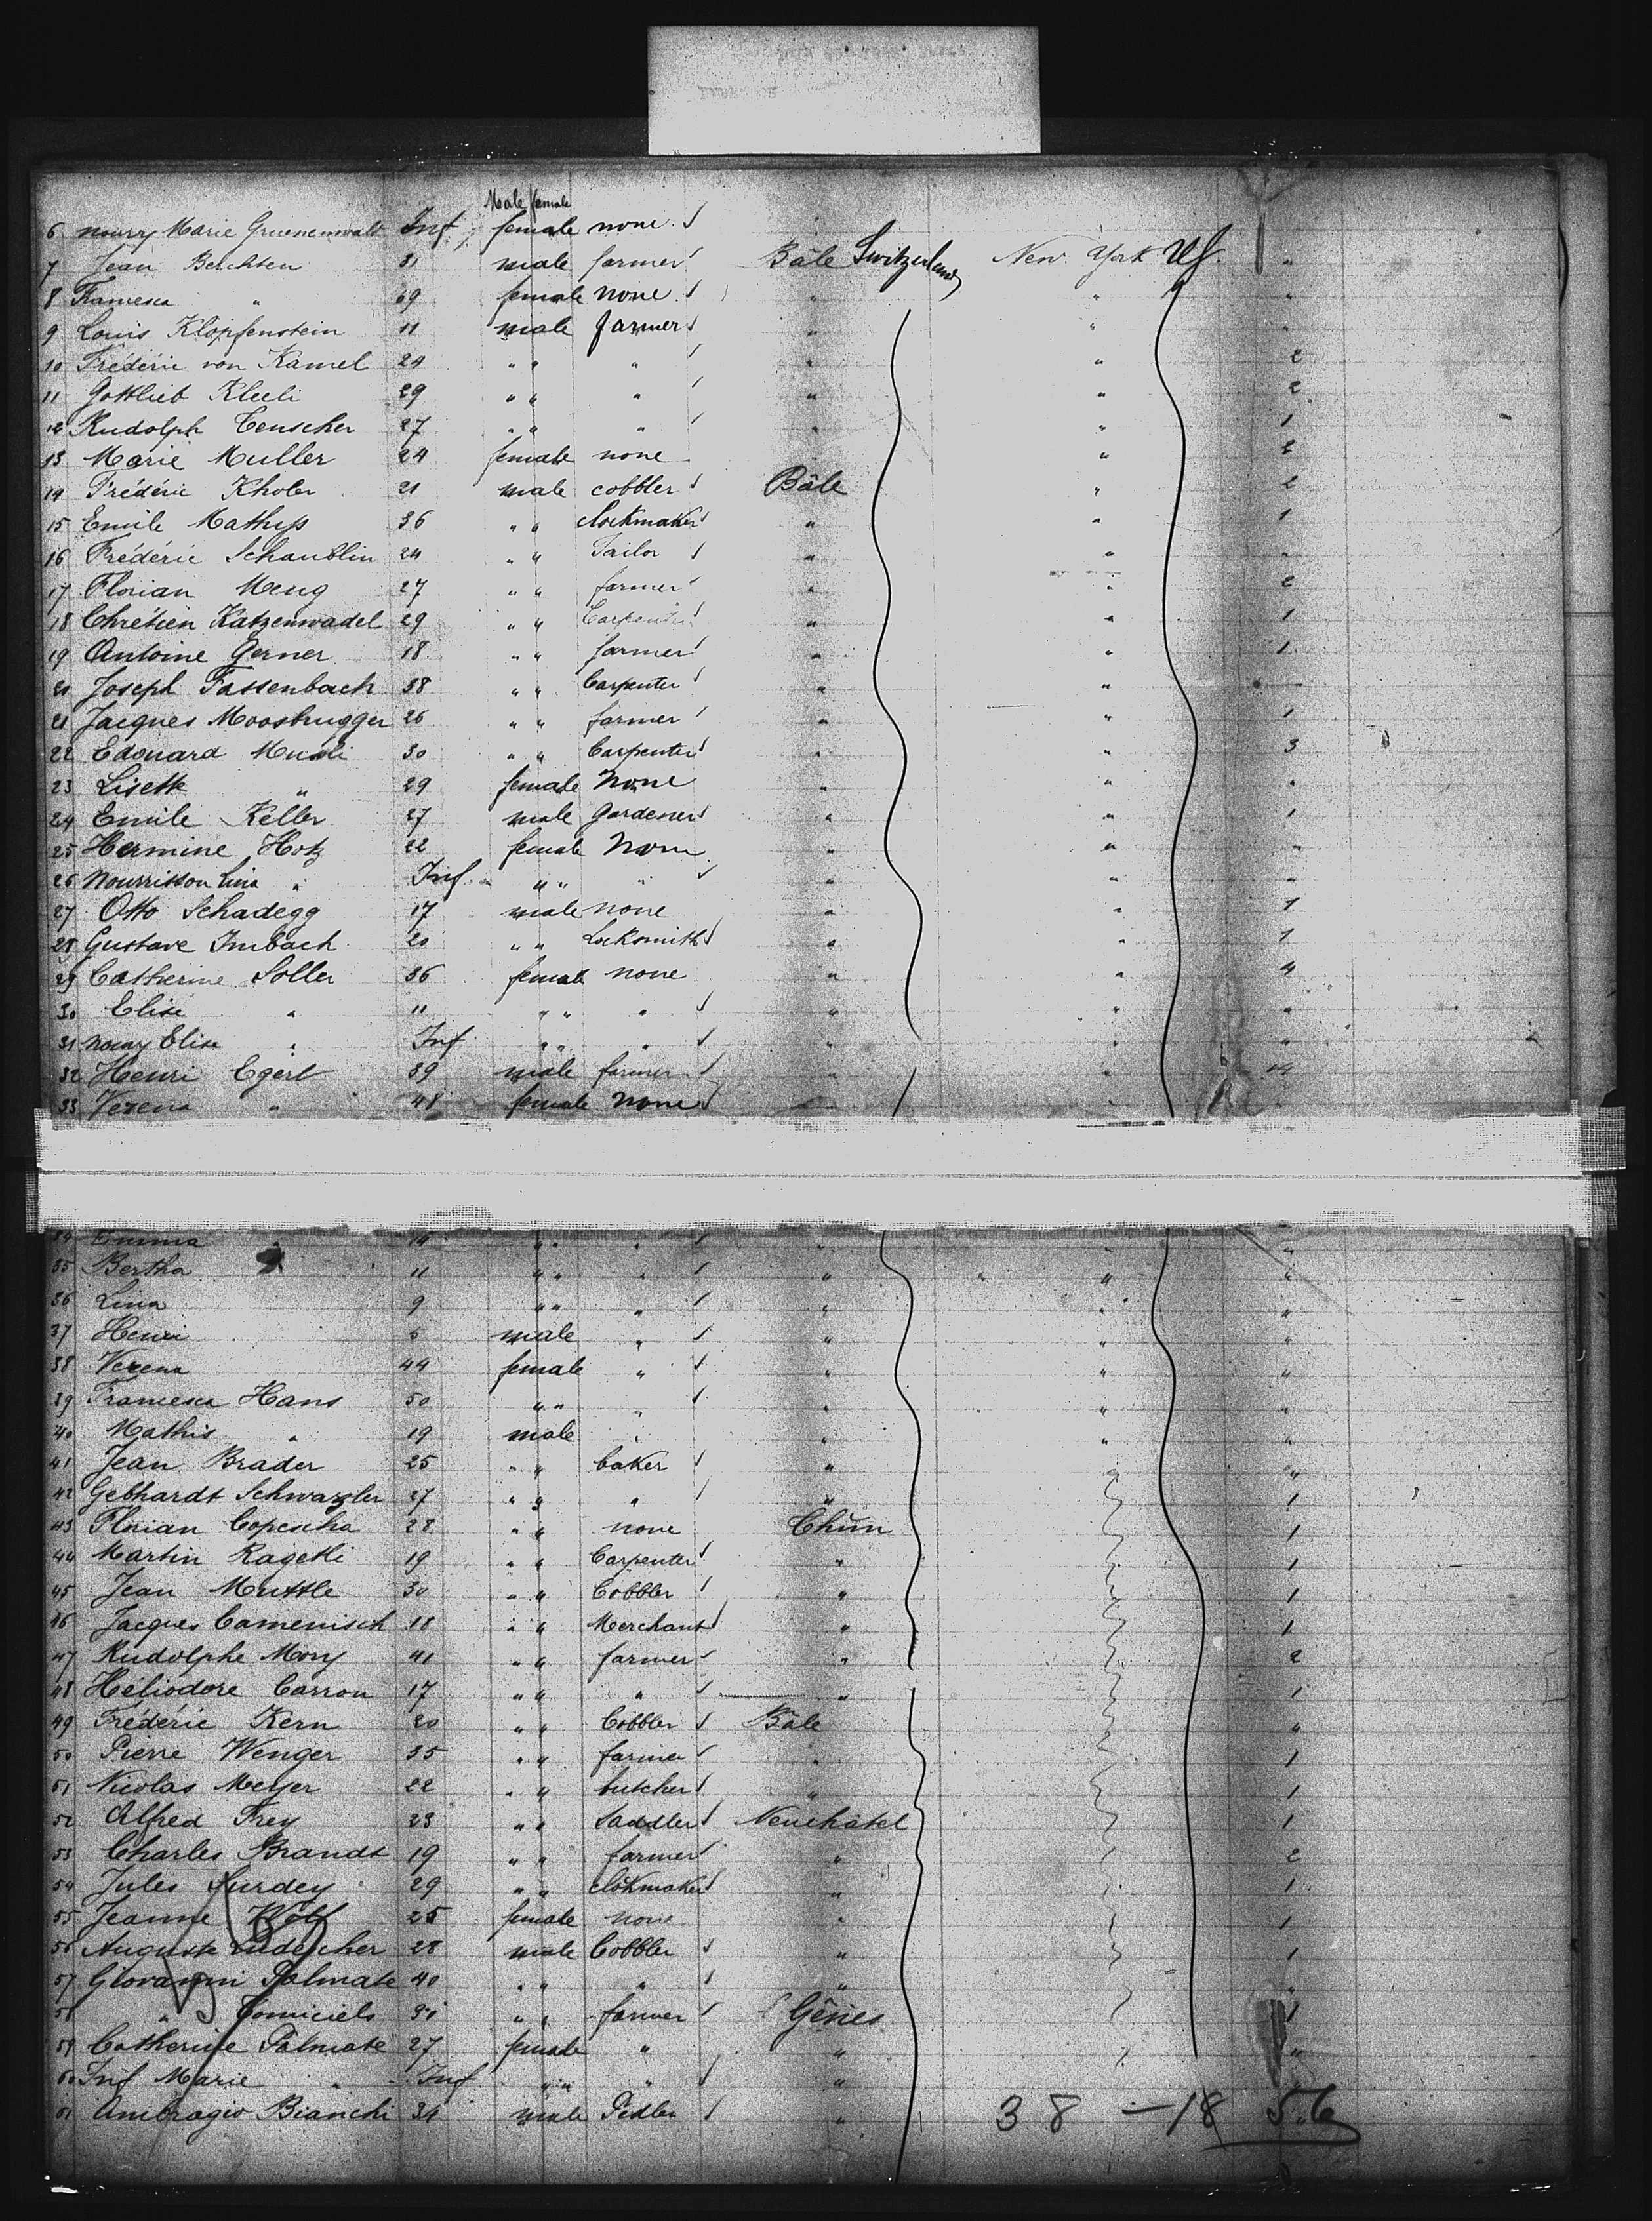 Male female
6 nourry Marie Gruenenwald Inf female none
7 Jean Berchten 31 male farmer Bâle Switzerland New York US "
8 Francesca " 69 female none " " "
9 Louis Klopfenstein 11 male farmer " " "
10 Frédéric von Kamel 24 " " " " " 2
11 Gottlieb Klueli 29 " " " " " 2
12 Rudolph Teuscher 27 " " " " " 1
13 Marie Muller 24 female none " " 2
14 Frédéric Kholer 21 male cobbler Bâle " 2
15 Emile Mathys 36 " " clockmaker " " 1
16 Frédéric Schaublin 24 " " Tailor " " "
17 Florian Meng 27 " " farmer " " 2
18 Chrétien Katzenwadel 29 " " Carpenter " " 1
19 Antoine Gerner 18 " " farmer " " 1
20 Joseph Fassenbach 38 " " Carpenter " " —
21 Jacques Moosbrugger 26 " " farmer " " 1
22 Edouard Musli 30 " " Carpenter " " 3
23 Lisette " 29 female none " " "
24 Emile Keller 27 male gardener " " 1
25 Hermine Hotz 22 female none " " "
26 nourrisson Lina " Inf " " " " " "
27 Otto Schadegg 17 male none " " 1
28 Gustave Imbach 20 " " Locksmith " " 1
29 Catherine Soller 36 female none " " 4
30 Elise " 11 " " " " " "
31 nourry Elise " Inf " " " " " "
32 Henri Egert 39 male farmer " "
33 Verena " 41 female none "
34 Emma " 14 " " " " " "
35 Bertha 11 " " " " " "
36 Lina 9 " " " " " "
37 Henri 5 male " " " "
38 Verena 44 female " " " "
39 Francesca Hans 50 " " " " " "
40 Mathis " 19 male " " " "
41 Jean Brader 25 " " baker " " "
42 Gebhardt Schwarzler 27 " " " " 1
43 Florian Copescha 28 " " none Chún 1
44 Martin Ragetli 19 " " Carpenter " 1
45 Jean Muttle 30 " " Cobbler " 1
46 Jacques Camenisch 18 " " Merchant " 1
47 Rudolphe Mory 41 " " farmer " 2
48 Héliodore Carron 17 " " " " 1
49 Frédéric Kern 20 " " Cobbler Bâle "
50 Pierre Wenger 35 " " farmer " 1
51 Nicolas Meyer 22 " " butcher " 1
52 Alfred Frey 23 " " Saddler Neuchâtel 1
53 Charles Brandt 19 " " farmer " 2
54 Jules Surdey 29 " " clokmaker " 1
55 Jeanne Wolf 25 female none " 1
56 Auguste Ludescher 28 male Cobbler " 1
57 Giovanni Palmate 40 " " " " "
58 " Tomiciels " " farmer Gênes 1
59 Catherine Palmate 27 female " " "
60 Inf Marie " Inf " " " "
61 Ambragio Bianchi 34 male Pedler "
38 — 18 56